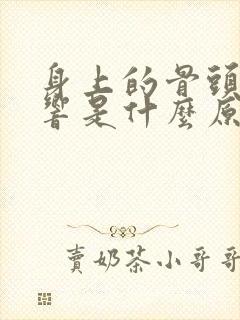 身上的骨頭
響是什麼原
賣奶茶小哥哥